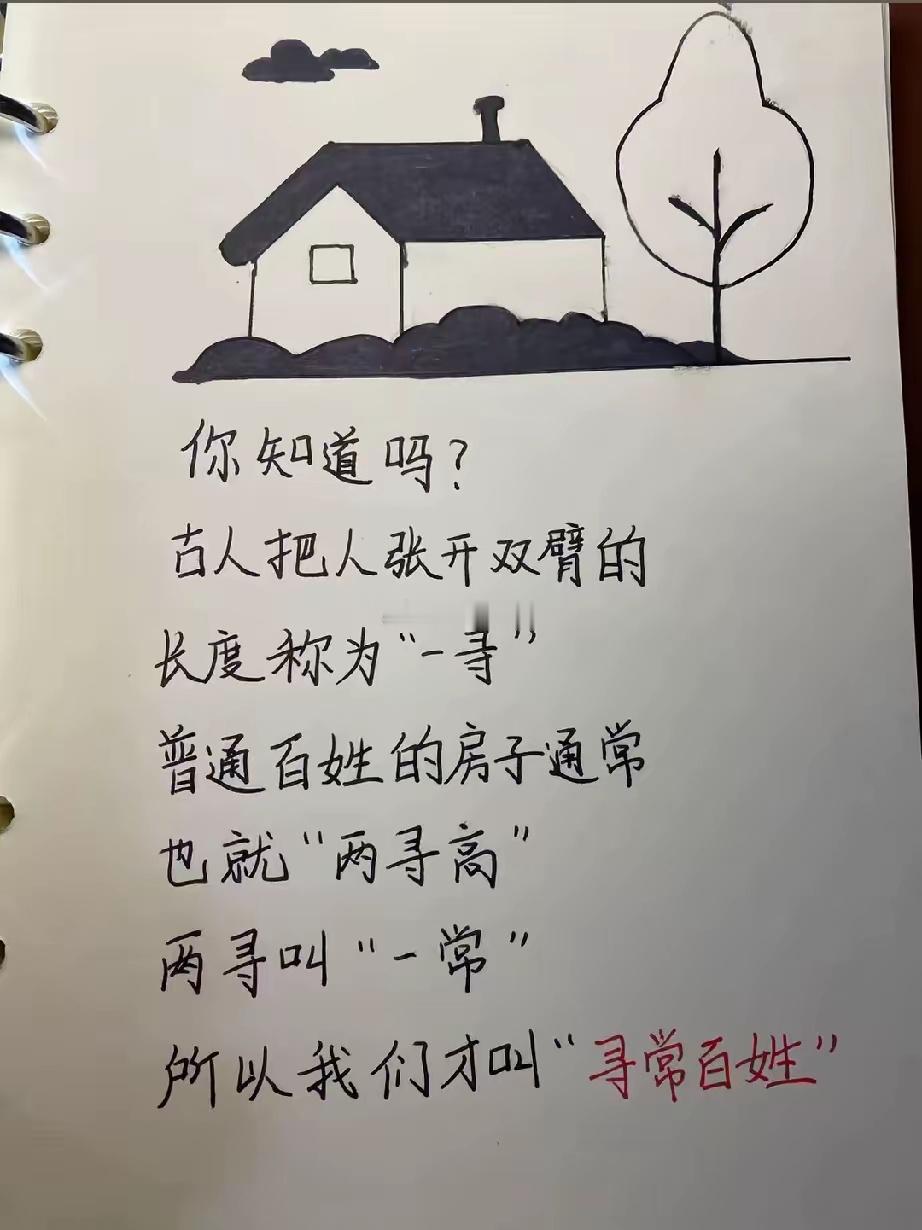 你知道吗?
古人把人张开双臂的
长度称为“一寻”
普通百姓的房子通常
也就“两寻高”
两寻叫“一常”
所以我们才叫“寻常百姓”